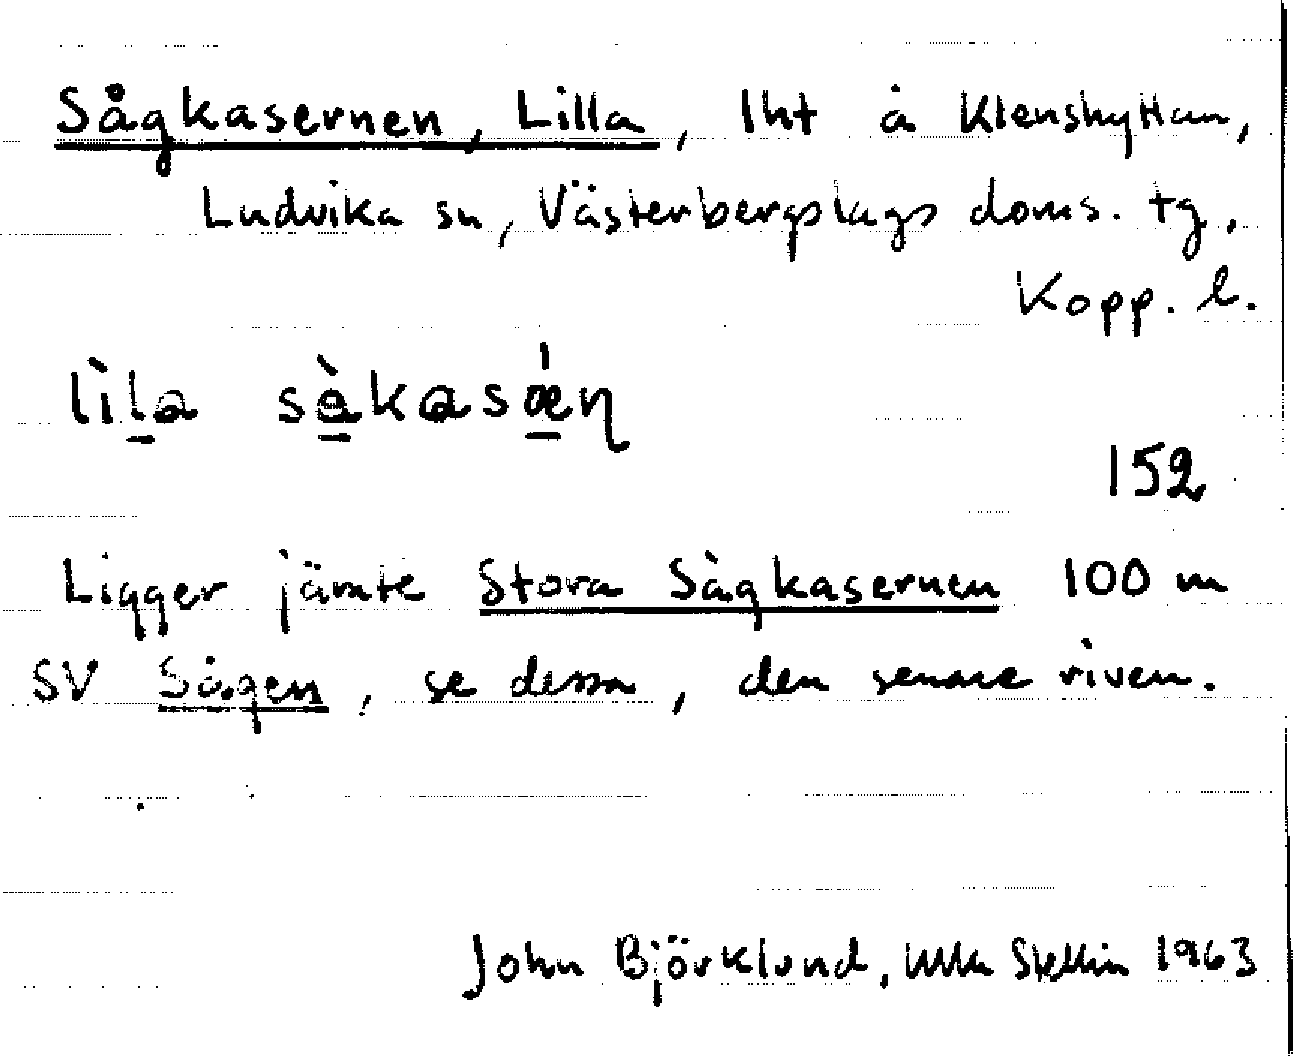 Sågkasernen, Lilla, lht å Klenshyttan,
Ludvika sn, Västerbergslags doms. tg,
Kopp. l.
lìla sàkasǽn
152
Ligger jämte Stora Sågkasernen 100 m
SV Sågen, se dessa, den senare riven.
John Björklund, Ulla Stellin 1963